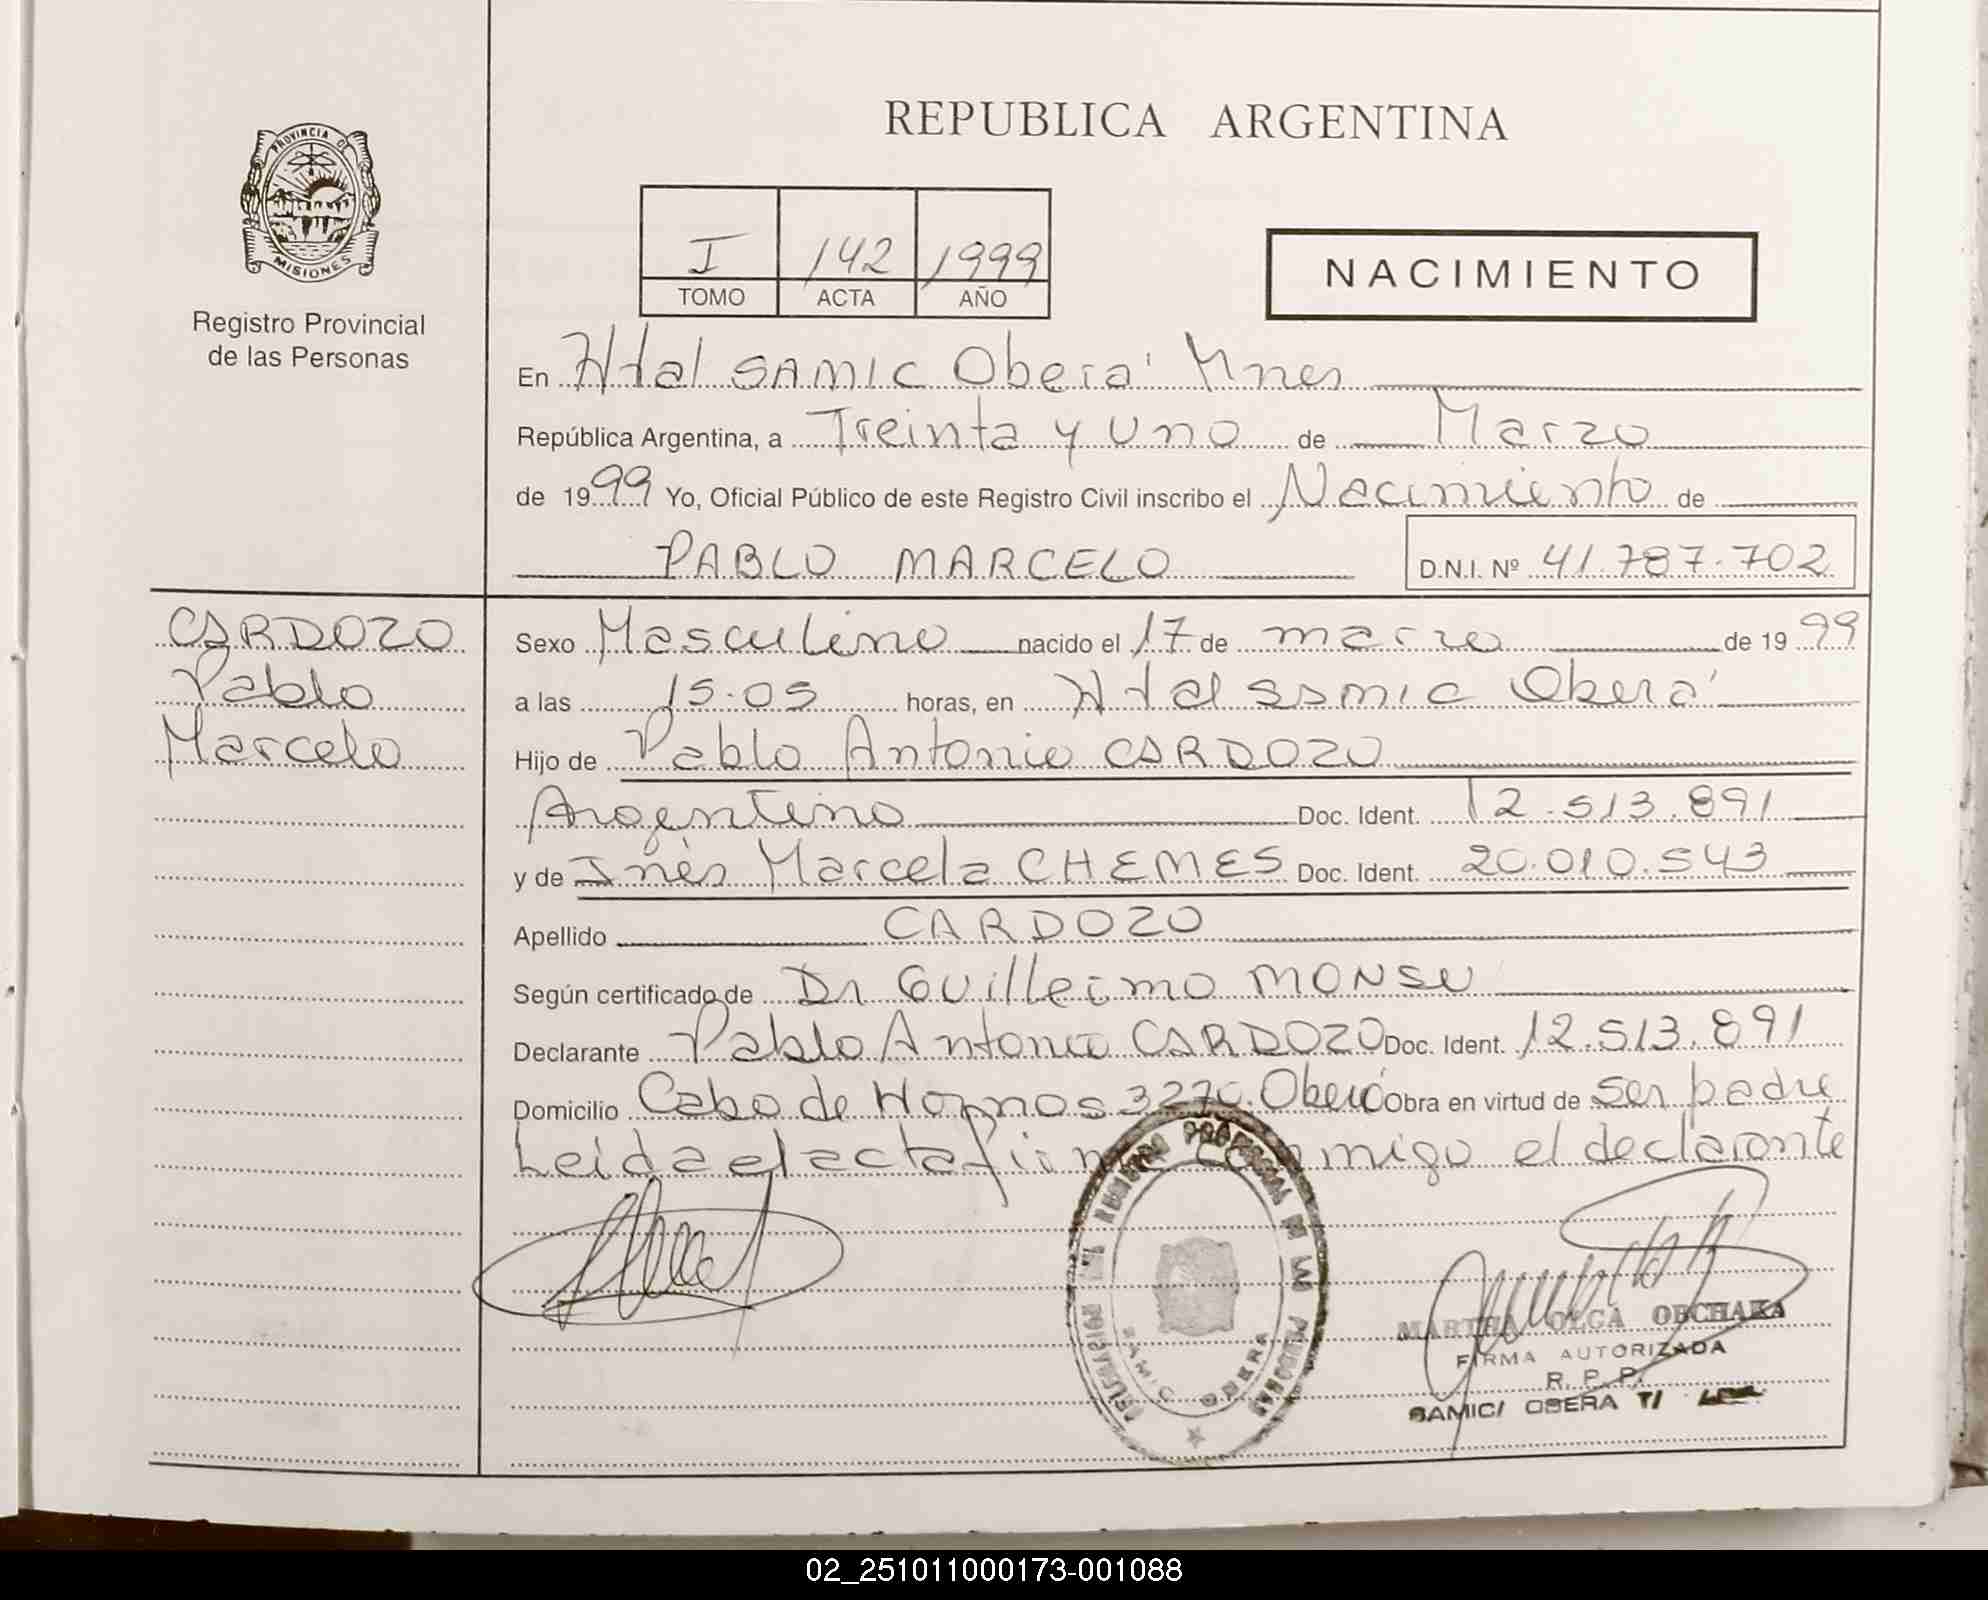 PROVINCIA DE
MISIONES
Registro Provincial
de las Personas
REPUBLICA ARGENTINA
I 142 1999
TOMO ACTA AÑO
NACIMIENTO
En Htal SAMIC Oberá Mnes
República Argentina, a Treinta y uno de Marzo
de 1999 Yo, Oficial Público de este Registro Civil inscribo el Nacimiento de
PABLO MARCELO D.N.I. Nº 41.787.702
CARDOZO
Pablo
Marcelo
Sexo Masculino nacido el 17 de marzo de 1999
a las 15.05 horas, en Htal SAMIC Oberá
Hijo de Pablo Antonio CARDOZO
Argentino Doc. Ident. 12.513.891
y de Inés Marcela CHEMES Doc. Ident. 20.010.543
Apellido CARDOZO
Según certificado de Dr Guillermo MONSU
Declarante Pablo Antonio CARDOZO Doc. Ident. 12.513.891
Domicilio Cabo de Hornos 3270. Oberá Obra en virtud de ser padre
Leida el acta firma conmigo el declarante
REGISTRO PROVINCIAL DE LAS PERSONAS
SAMIC OBERA
MARTHA OLGA OBCHAKA
FIRMA AUTORIZADA
R. P. P.
SAMIC/ OBERA T/
02_251011000173-001088